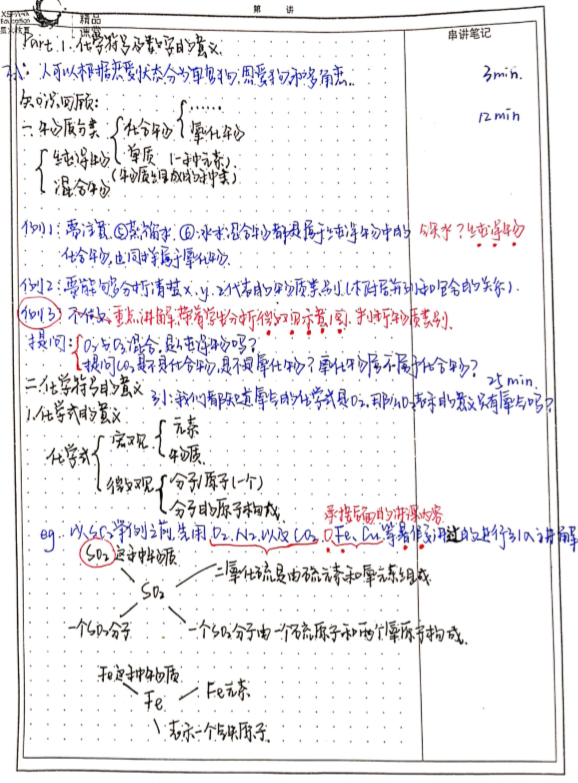 第 讲
精品
课堂
串讲笔记
Part.1.化学符号及数字的意义.
引: 人可以根据恋爱状态分为单身狗.恋爱狗和多角恋..
3min.
知识回顾:
一.物质分类 { 化合物 { …… 氧化物
12min
{ 纯净物 单质 (一种元素)
混合物 (物质组成的种类)
例1: 要注意, ⑤蒸馏水. ⑥冰水混合物都是属于纯净物中的
化合物,也同样属于氧化物.
冰水?纯净物
例2: 要能够分析清楚x.y.z代表的物质类别.(本附后并列和包含的关系).
例3: 重点讲解,带着学生分析微观示意图.判断物质类别.
提问: { O₂与O₃混合,是纯净物吗?
提问CO₂是不是化合物,是不是氧化物? 氧化物属不属于化合物?
二.化学符号的意义
25min.
引:我们都知道氧气的化学式是O₂,那么O₂表示的意义只有氧气吗?
1.化学式的意义
化学式 { 宏观 { 元素
物质.
微观 { 分子/原子(一个)
分子的原子构成.
承接后面的讲课内容
eg. 以SO₂举例之前,先用O₂.N₂.以及CO₂.Fe、Cu等 进行引入讲解
SO₂这种物质
二氧化硫是由硫元素和氧元素组成.
SO₂
一个SO₂分子
一个SO₂分子由一个硫原子和两个氧原子构成.
Fe这种物质
Fe
Fe元素
表示一个铁原子.